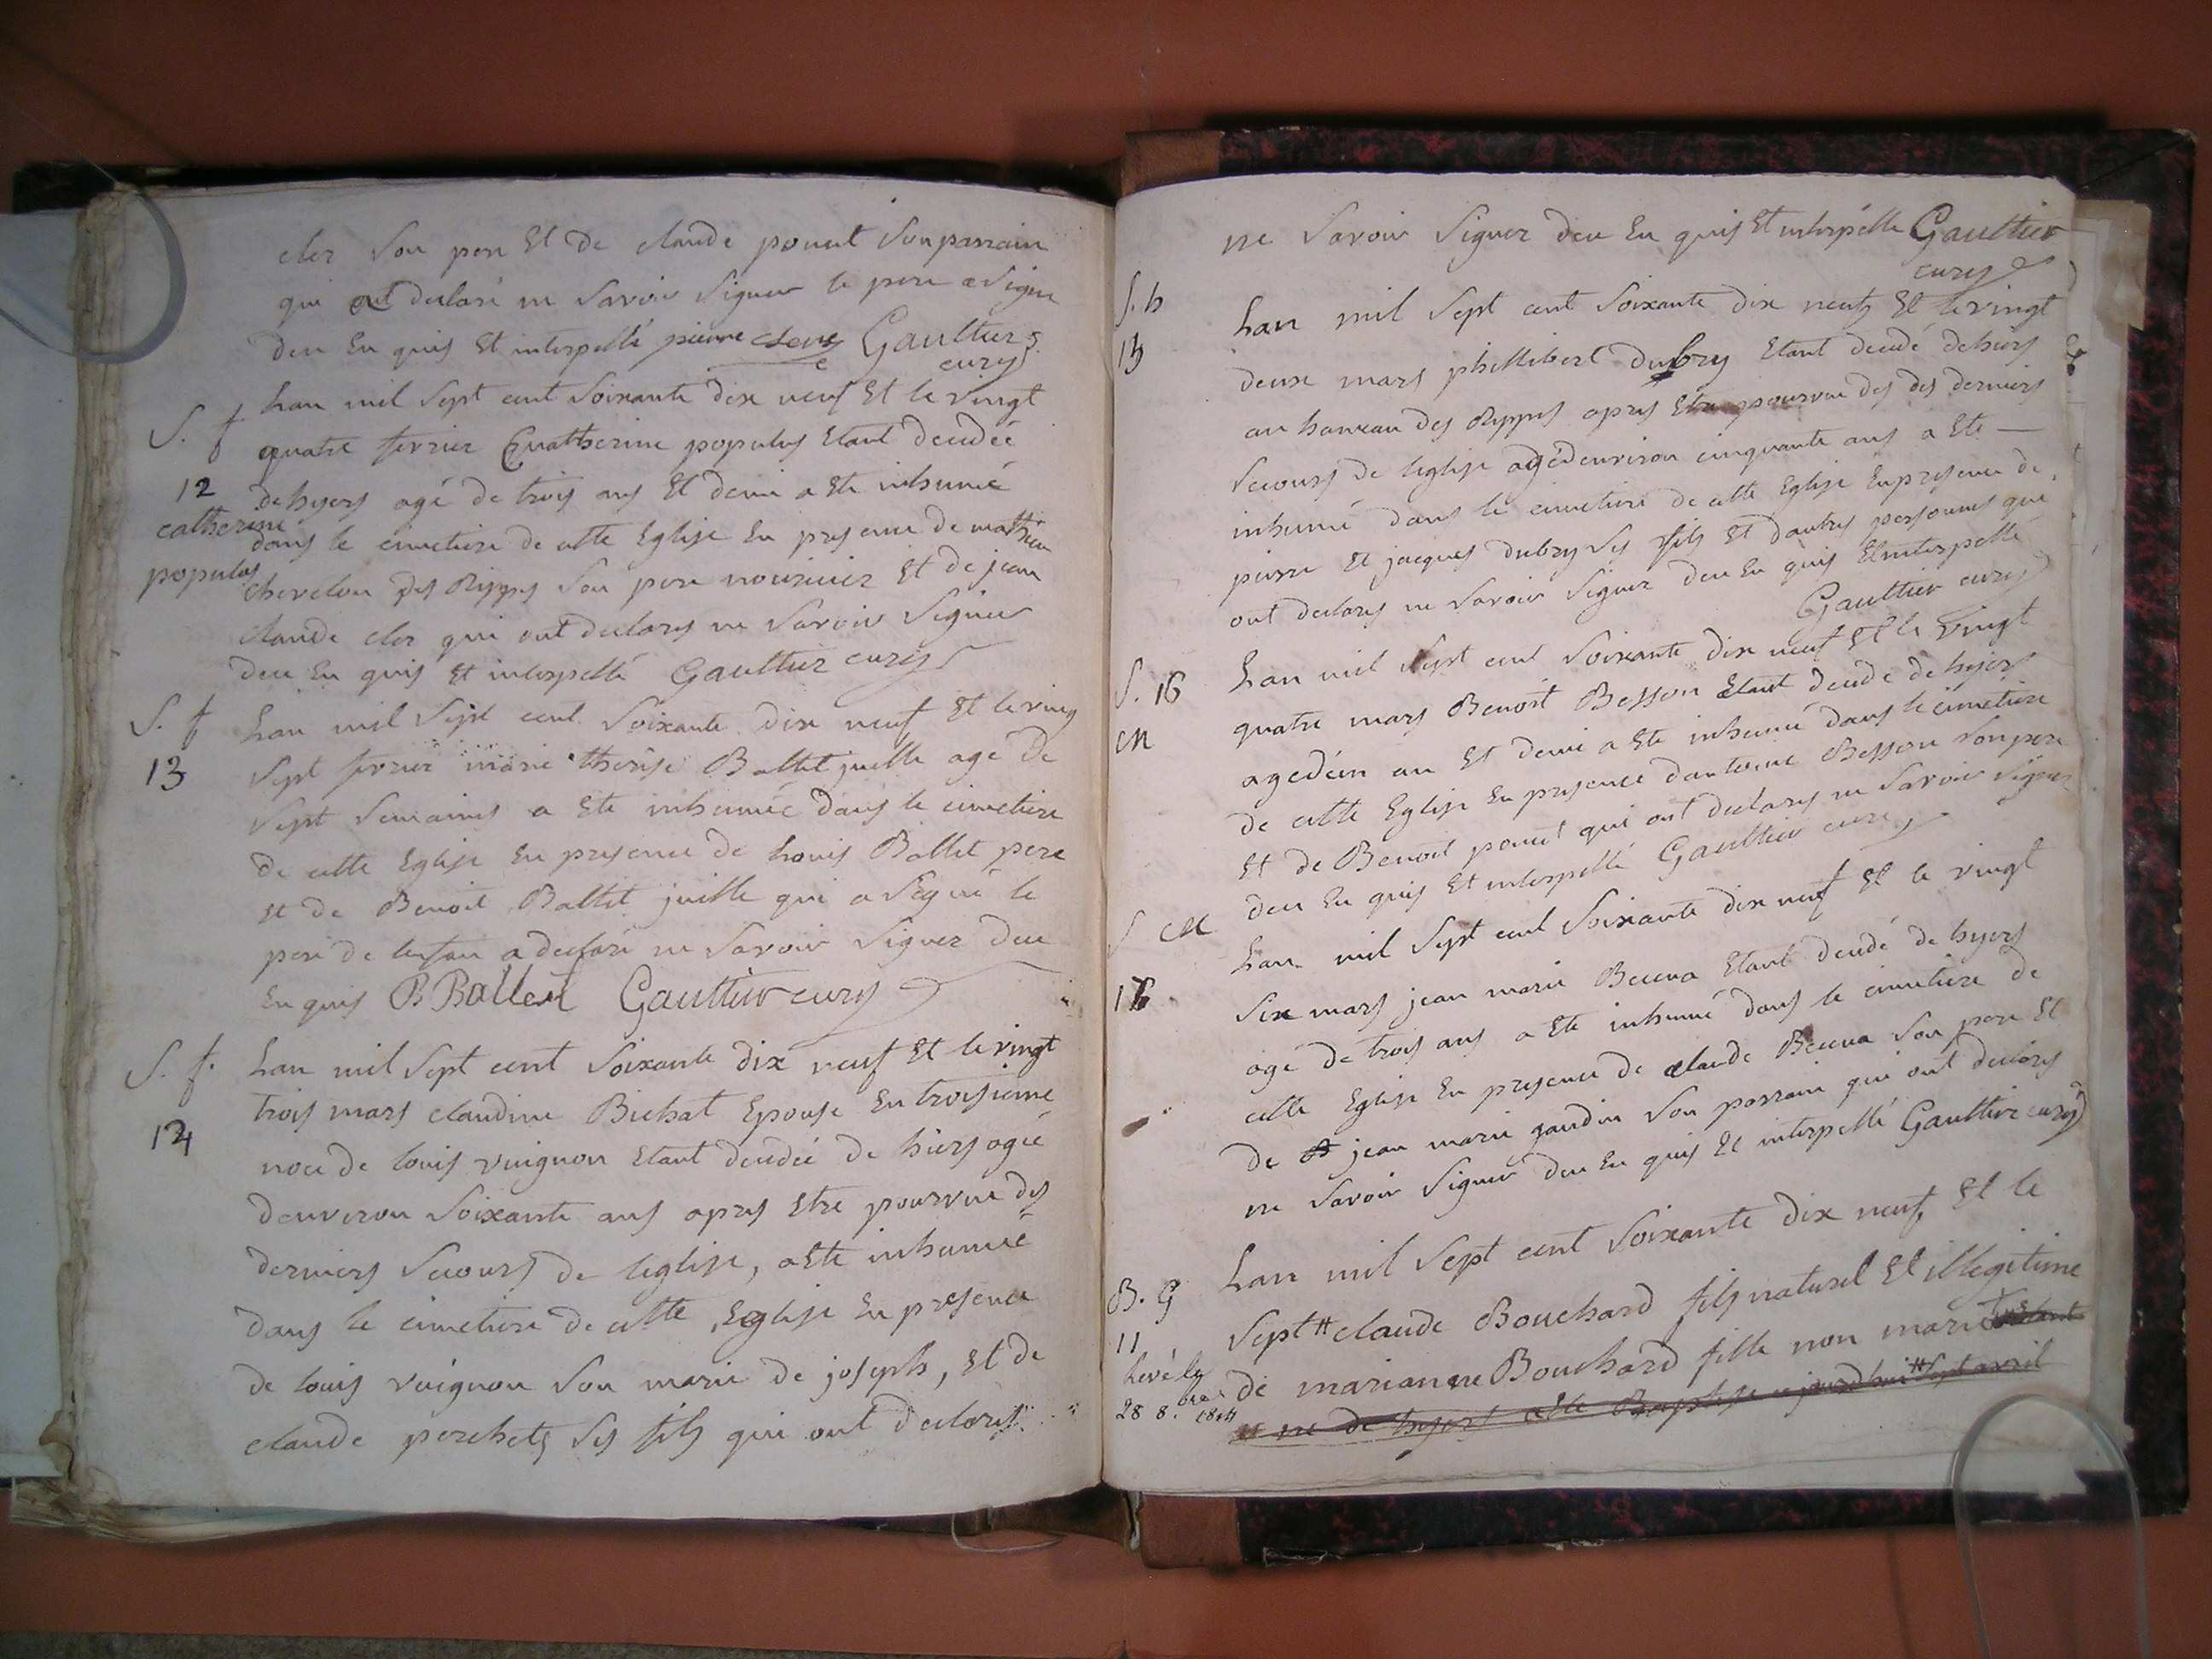 cler son pere Et de claude ponut son parrain
qui ont declaré ne savoir signer le pere a signé
deu En quis Et interpellé pierre clere Gaultier
curé
S. f Lan mil sept cent soixante dix neuf Et le vingt
quatre fevrier Catherine populus Etant decedée
12 dehyers agé de trois ans Et demi a Ete inhumé
catherine populus
dans le cimetiere de cette Eglise En presence de mathieu
chevelon des Rippes son pere nouricier Et de jean
claude cler qui ont declares ne savoir signer
deu En quis Et interpellé Gaultier curé
S. f Lan mil sept cent soixante dix neuf Et le ving
13 sept fevrier marie therese Ballet juelle age de
sept semaines a Ete inhumée dans le cimetiere
de cette Eglise En presence de Louis Ballet pere
et de Benoit Ballet juille qui a signé le
pere de lenfan a declaré ne savoir signer deu
En quis B Ballet Gaultier curé
S. f. Lan mil sept cent soixante dix neuf Et le vingt
trois mars claudine Bichat Epouse En troisieme
14 noce de louis vuignon Etant decedée de hiers agée
denviron soixante ans apres Etre pourvue des
derniers secours de leglise, a Ete inhumée
dans le cimetiere de cette Eglise En presence
de louis vuignon son marie de joseph, Et de
claude perchets ses fils qui ont declares
ne savoir signer deu En quis Et interpellé Gaultier
curé
S. h Lan mil sept cent soixante dix neufs Et le vingt
15 deuse mars phillibert dubry Etant decedé dehiers
au hameau des Rippes apres Etre pourvue des des derniers
secours de leglise agé denviron cinquante ans a Ete
inhumé dans le cimetiere de cette Eglise En presence de
pierre Et jacques dubry ses fils Et dautres personnes qui
ont declares ne savoir signer deu En quis Et interpellé
Gaultier curé
S. 16 Lan mil sept cent soixante dix neuf Et le vingt
quatre mars Benoit Besson Etant decedé de hyers
agé dun an Et demi a Ete inhumé dans le cimetiere
de cette Eglise En presence dantoine Besson son pere
Et de Benoit ponut qui ont declares ne savoir signer
deu En quis Et interpellé Gaultier curé
S Lan mil sept cent soixante dix neuf Et le vingt
six mars jean marie Becuva Etant decedé de hyers
agé de trois ans a Ete inhumé dans le cimetiere de
cette Eglise En presence de claude Becuva son pere Et
de jean marie gaudin son parrain qui ont declares
ne savoir signer deu En quis Et interpellé Gaultier curé
B. G Lan mil sept cent soixante dix neuf Et le
11 sept # claude Bouchard fils naturel Et illegitime
levé le 28 8.bre
de marianne Bouchard fille non marié Etant
né de hyers a Ete Baptise ce jourdhui # sept avril